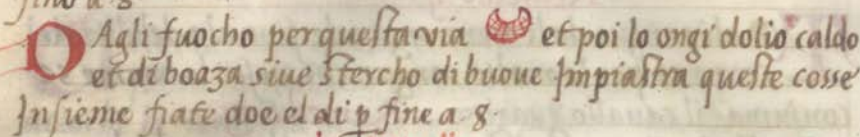 fino a 8
DAgli fuocho per questa via et poi lo ongi dolio caldo
et di boaza siue stercho di buoue Impiastra queste cosse
Insieme fiate doe el di p fine a 8·